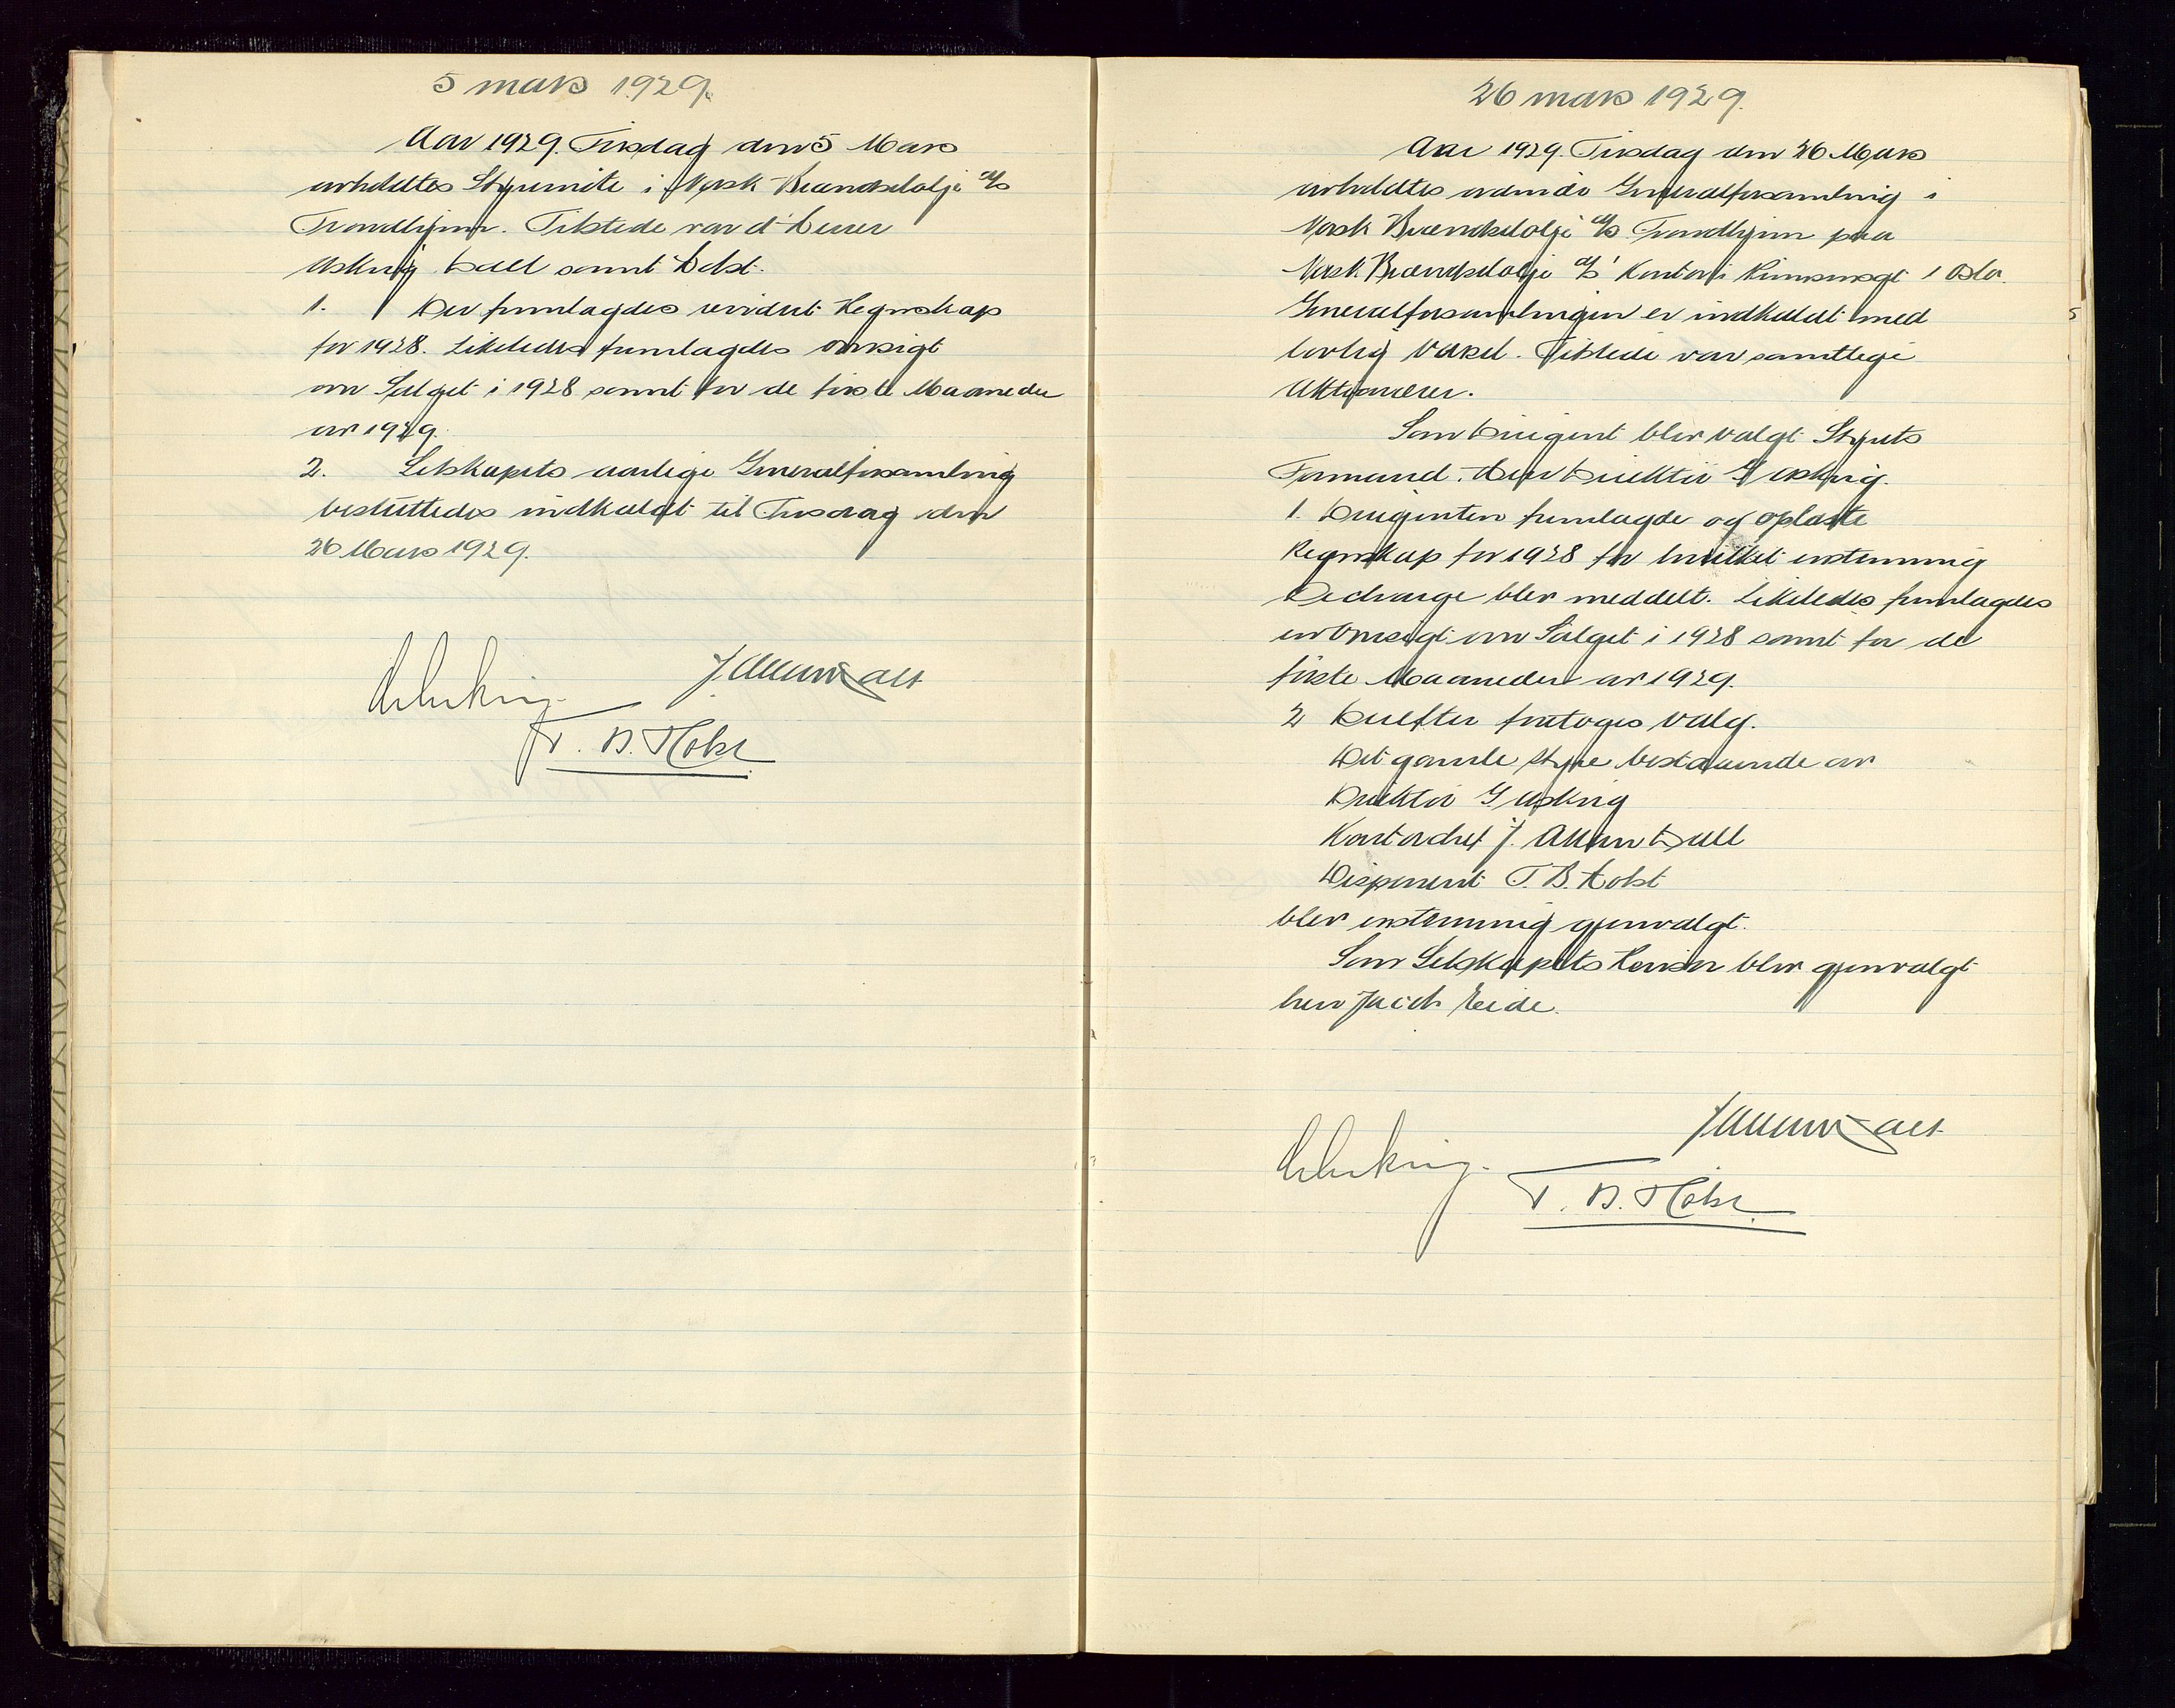 5 mars 1929.
Aar 1929. Tirsdag den 5 Mars
avholdtes Styremøte i Norsk Brændselolje A/S
Trondhjem. Tilstede var d'Herrer
Usking Dall samt Holst.
1. Der fremlagdes revidert Regnskap
for 1928. Likeledes fremlagdes oversigt
om Salget i 1928 samt for de første Maaneder
av 1929.
2. Selskapets aarlige Generalforsamling
besluttedes indkaldt til Tirsdag den
26 Mars 1929.
T. B. Holst
26 mars 1929.
Aar 1929. Tirsdag den 26 Mars
avholdtes ordinær Generalforsamling i
Norsk Brændselolje A/S Trondhjem paa
Norsk Brændselolje A/S' Kontor i 1 Oslo.
Generalforsamlingen er indkaldt med
lovlig Varsel. Tilstede var samtlige
Aktionærer.
Som Dirigent blev valgt Styrets
Formand, Herr Direktør G Usking.
1. Dirigenten fremlagde og oplæste
Regnskap for 1928 for hvilket enstemmig
Decharge blev meddelt. Likeledes fremlagdes
en Oversigt om Salget i 1928 samt for de
første Maaneder av 1929.
2 Derefter foretoges Valg.
Det gamle Styre bestaaende av
Direktør G Usking
Kontorchef J. Allum Dall
Disponent T. B. Holst
blev enstemmig gjenvalgt.
Som Selskapets Revisor blev gjenvalgt
herr Jach Eide.
T. B. Holst